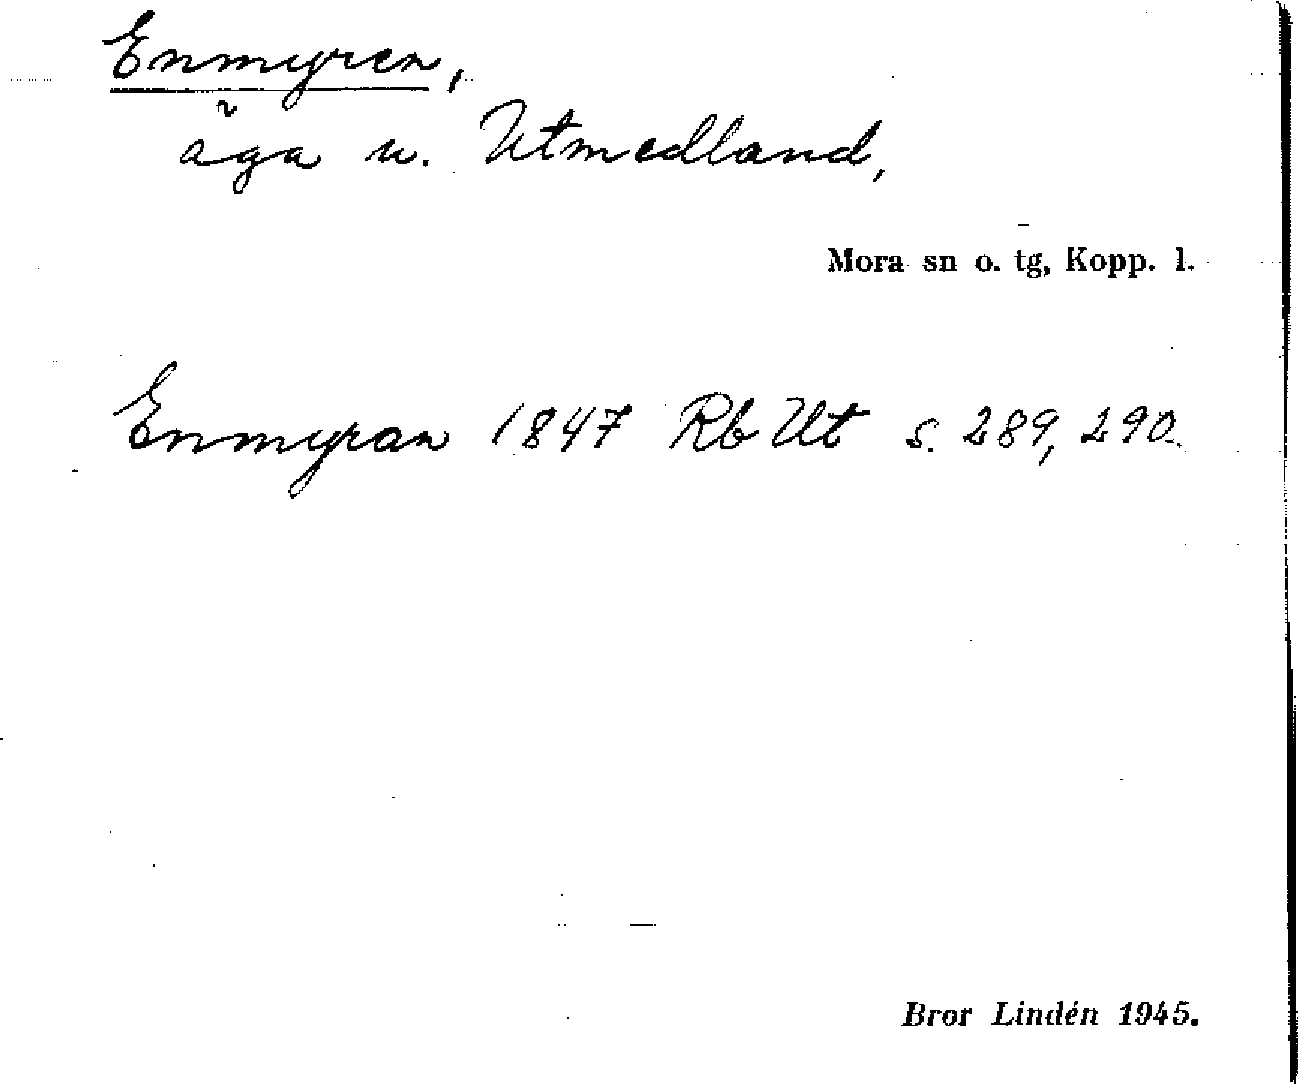 Enmyren,
äga u. Utmedland,
Mora sn o. tg, Kopp. l.
Enmyran 1847 Rb Ut s. 289, 290.
Bror Lindén 1945.